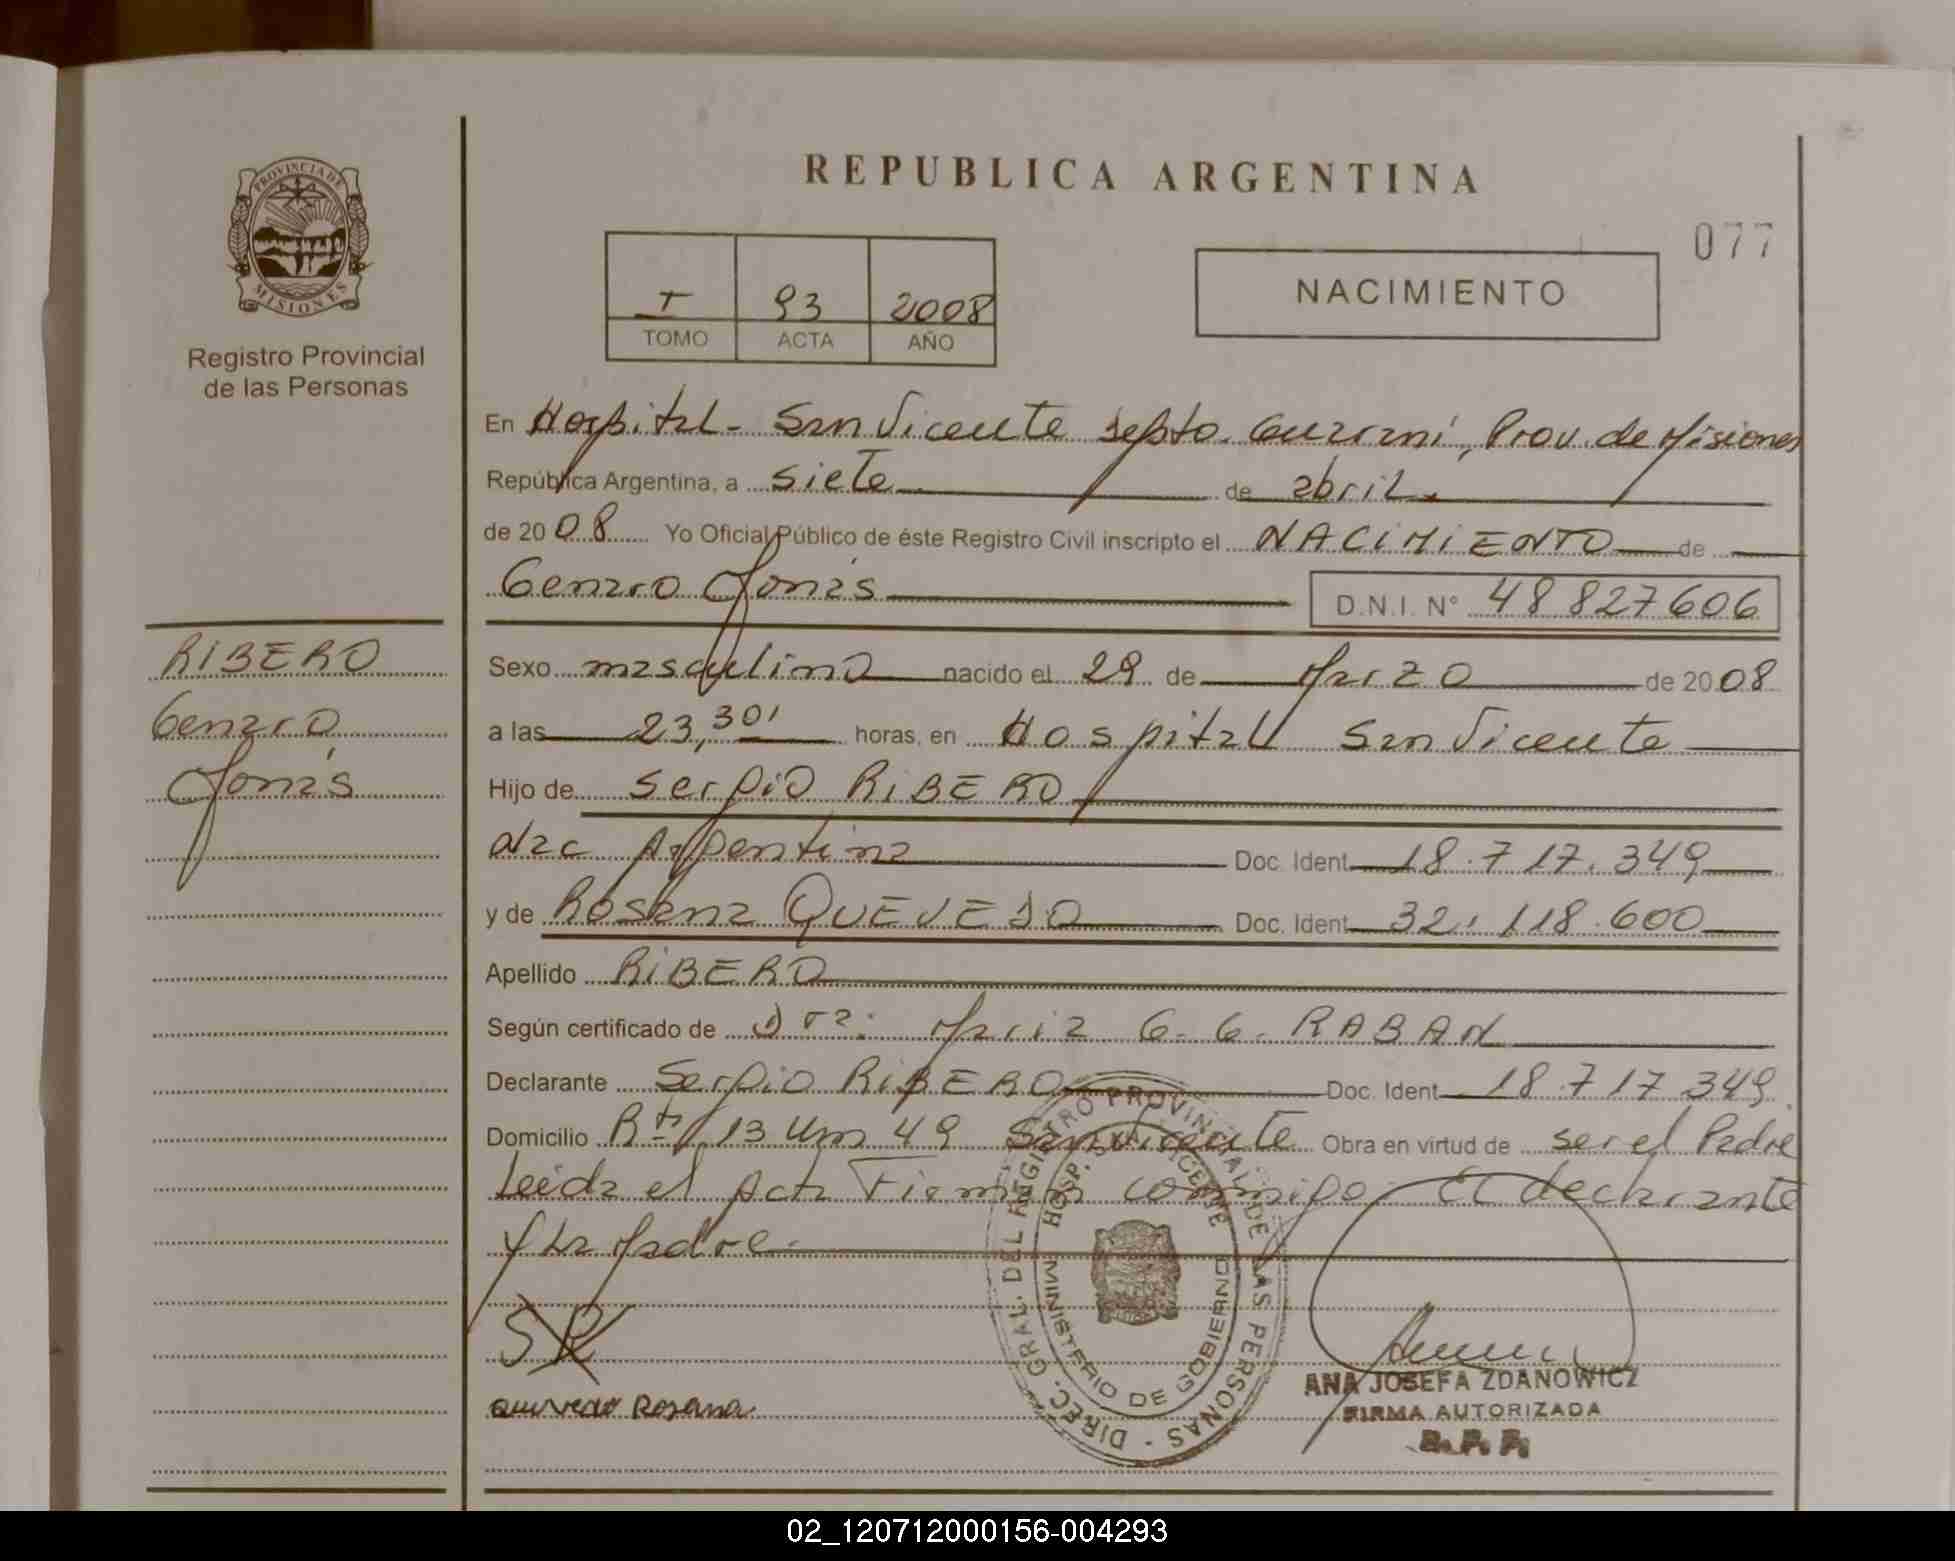 PROVINCIA DE
MISIONES
Registro Provincial
de las Personas
RIBERO
Genaro
Jonás
REPUBLICA ARGENTINA
077
I 93 2008
TOMO ACTA AÑO
NACIMIENTO
En Hospital - San Vicente Depto. Guaraní, Prov. de Misiones
República Argentina, a siete de abril
de 2008 Yo Oficial Público de éste Registro Civil inscripto el NACIMIENTO de
Genaro Jonás D.N.I. Nº 48827606
Sexo masculino nacido el 29 de Marzo de 2008
a las 23,30' horas, en Hospital San Vicente
Hijo de Sergio RIBERO
Nac Argentina Doc. Ident. 18.717.349
y de Rosana QUEVEDO Doc. Ident. 32.118.600
Apellido RIBERO
Según certificado de Dra: Maria G. G. RABAN
Declarante Sergio RIBERO Doc. Ident. 18.717.349
Domicilio Rta 13 Km 49 San Vicente Obra en virtud de ser el Padre
Leída el Acta Firman conmigo El declarante
y La Madre.
SR
Quevedo Rosana
DIREC. GRAL. DEL REGISTRO PROVINCIAL DE LAS PERSONAS
HOSP. SAN VICENTE
MINISTERIO DE GOBIERNO
ANA JOSEFA ZDANOWICZ
FIRMA AUTORIZADA
02_120712000156-004293